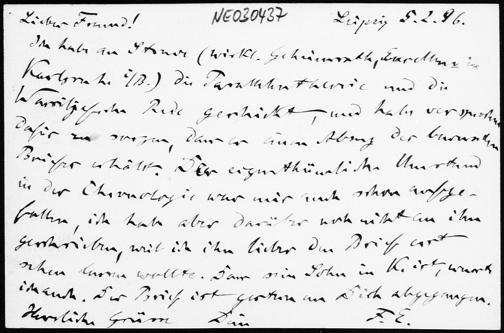 Lieber Freund! NE030437 Leipzig 5.2.96.
Ich habe an (wirkl. Geheimrath, Excellenz in
Karlsruhe i/B.) die und die
Rede geschickt, und habe versprochen
dafür zu sorgen, dass er einen Abzug des bewussten
Briefes erhält. Der eigenthümliche Umstand
in der Chronologie war mir auch schon aufge-
fallen, ich habe aber darüber noch nicht an ihn
geschrieben, weil ich ihn lieber den Brief erst
sehen lassen wollte. Dass sein Sohn in K. ist, wusste
ich auch. Der Brief ist gestern an Dich abgegangen.
Herzliche Grüsse Dein F. E.